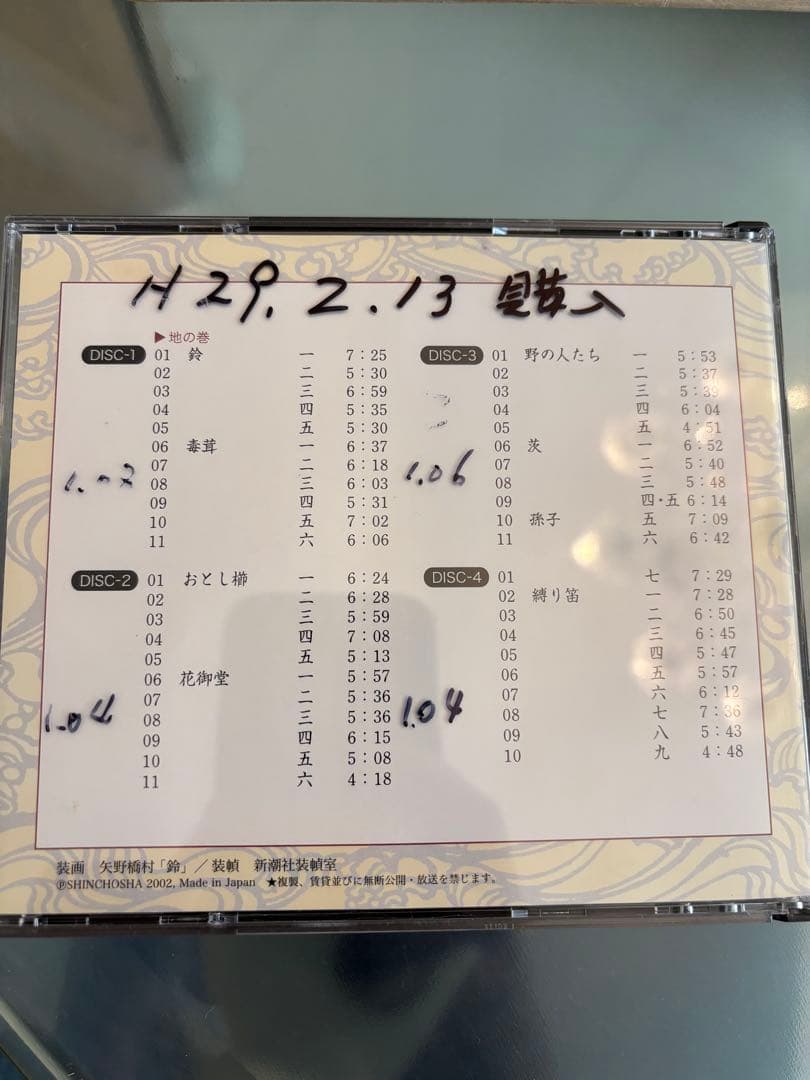 H29.2.13 購入
▶地の巻
DISC-1 01 鈴 一 7:25
02 二 5:30
03 三 6:59
04 四 5:35
05 五 5:30
06 毒茸 一 6:37
07 二 6:18
08 三 6:03
09 四 5:31
10 五 7:02
11 六 6:06
DISC-2 01 おとし櫛 一 6:24
02 二 6:28
03 三 5:59
04 四 7:08
05 五 5:13
06 花御堂 一 5:57
07 二 5:36
08 三 5:36
09 四 6:15
10 五 5:08
11 六 4:18
1.04
DISC-3 01 野の人たち 一 5:53
02 二 5:37
03 三 5:39
04 四 6:04
05 五 4:51
06 茨 一 6:52
07 二 5:40
08 三 5:48
09 四・五 6:14
10 孫子 五 7:09
11 六 6:42
1.06
DISC-4 01 七 7:29
02 縛り笛 一 7:28
03 二 6:50
04 三 6:45
05 四 5:47
06 五 5:57
07 六 6:12
08 七 7:36
09 八 5:43
10 九 4:48
1.04
装画 矢野橋村「鈴」／装幀 新潮社装幀室
℗SHINCHOSHA 2002, Made in Japan ★複製、賃貸並びに無断公開・放送を禁じます。